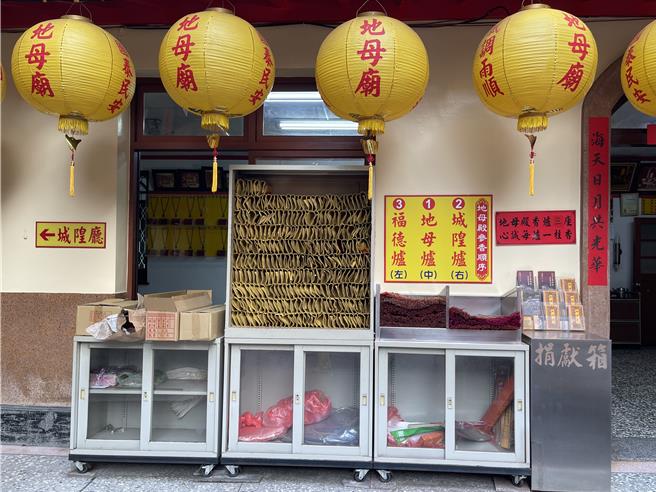 地母廟
泰民安
地母廟
民安
地母廟
調雨順
地母廟
民安
城隍廳
地母殿參香順序
2 城隍爐(右)
1 地母爐(中)
3 福德爐(左)
地母殿香爐三座
心誠每爐一柱香
海天日月共光華
捐獻箱